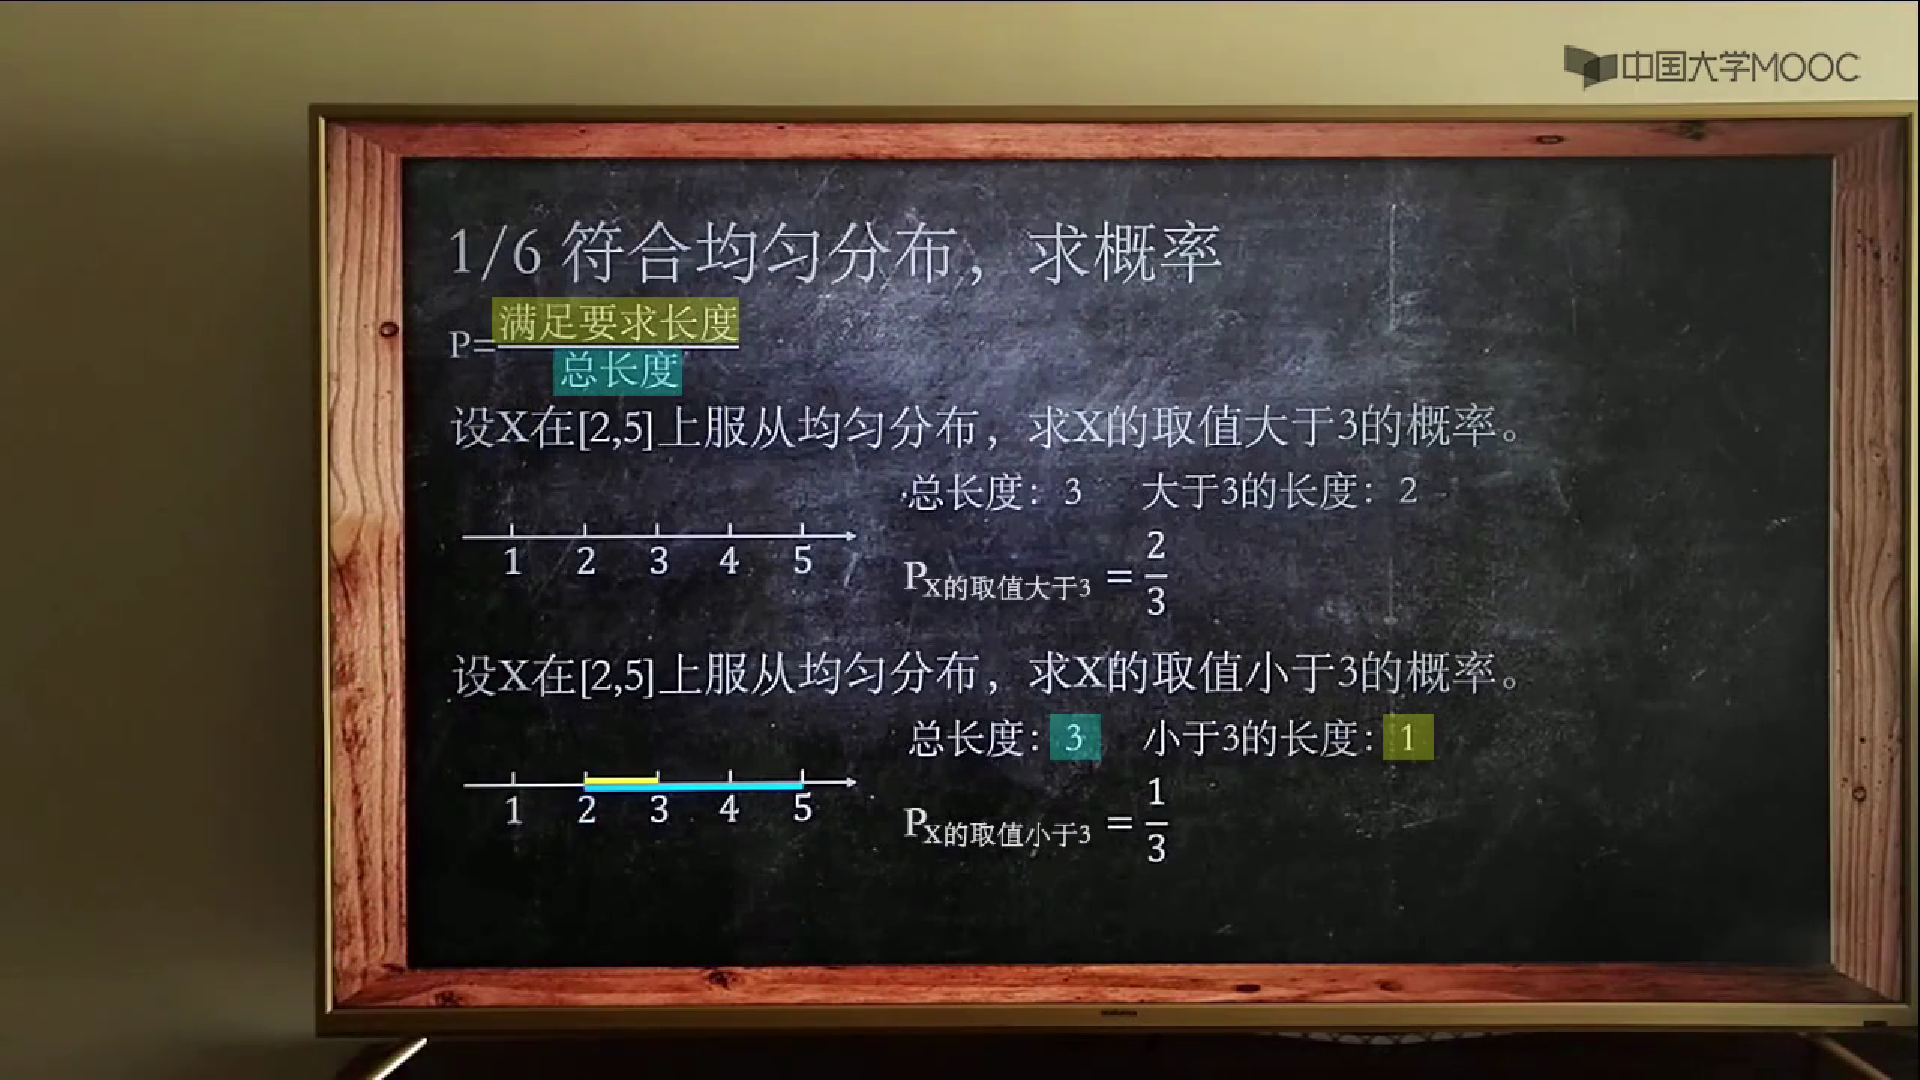 中国大学MOOC
1/6 符合均匀分布，求概率
P=满足要求长度/总长度
设X在[2,5]上服从均匀分布，求X的取值大于3的概率。
总长度：3 大于3的长度：2
1 2 3 4 5
PX的取值大于3 = 2/3
设X在[2,5]上服从均匀分布，求X的取值小于3的概率。
总长度：3 小于3的长度：1
1 2 3 4 5
PX的取值小于3 = 1/3